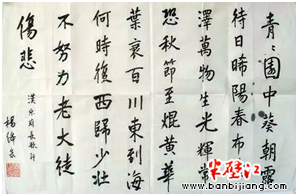 青〻園中葵朝露
待日晞陽春布
澤萬物生光輝常
恐秋節至焜黃華
葉衰百川東到海
何時復西歸少壯
不努力老大徒
傷悲
漢樂府長歌行
半壁江
www.banbijiang.com